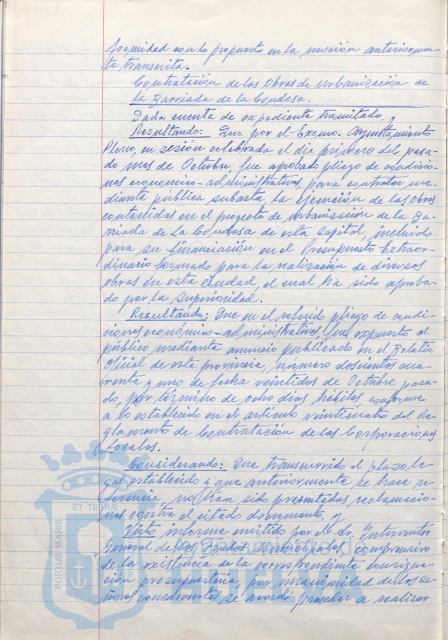 formidad con lo propuesto en la moción anteriormen-
te transcrita.
Contratación de las Obras de Urbanización de
la Barriada de la Condesa.
Dada cuenta de expediente tramitado, y
Resultando: Que por el Excmo. Ayuntamiento
Pleno, en sesión celebrada el día primero del pasa-
do mes de Octubre, fue aprobado pliego de condicio-
nes económico-administrativas, para contratar me-
diante pública subasta la ejecución de las Obras
contenidas en el proyecto de Urbanización de la Ba-
rriada de La Condesa de esta Capital, incluido
para su financiación en el Presupuesto Extraor-
dinario formado para la realización de diversas
obras en esta ciudad, el cual ha sido aproba-
do por la Superioridad.
Resultando: Que en el referido pliego de condi-
ciones económico-administrativas fue expuesto al
público mediante anuncio publicado en el Boletín
Oficial de esta provincia, número doscientos cua-
renta y uno de fecha veintidos de Octubre pasa-
do, por término de ocho días hábiles conforme
a lo establecido en el artículo veinticuatro del Re-
glamento de Contratación de las Corporaciones
Locales.
Considerando: Que transcurrido el plazo le-
gal establecido y que anteriormente se hace re-
ferencia no han sido presentadas reclamacio-
nes contra el citado documento, y
Visto informe emitido por el Sr. Interventor
General de los Fondos Municipales, comprensivo
de la existencia de la correspondiente consigna-
ción presupuestaria, por unanimidad de los se-
ñores concurrentes, se acordó proceder a realizar
ET TERRA
PORTUS MARIS